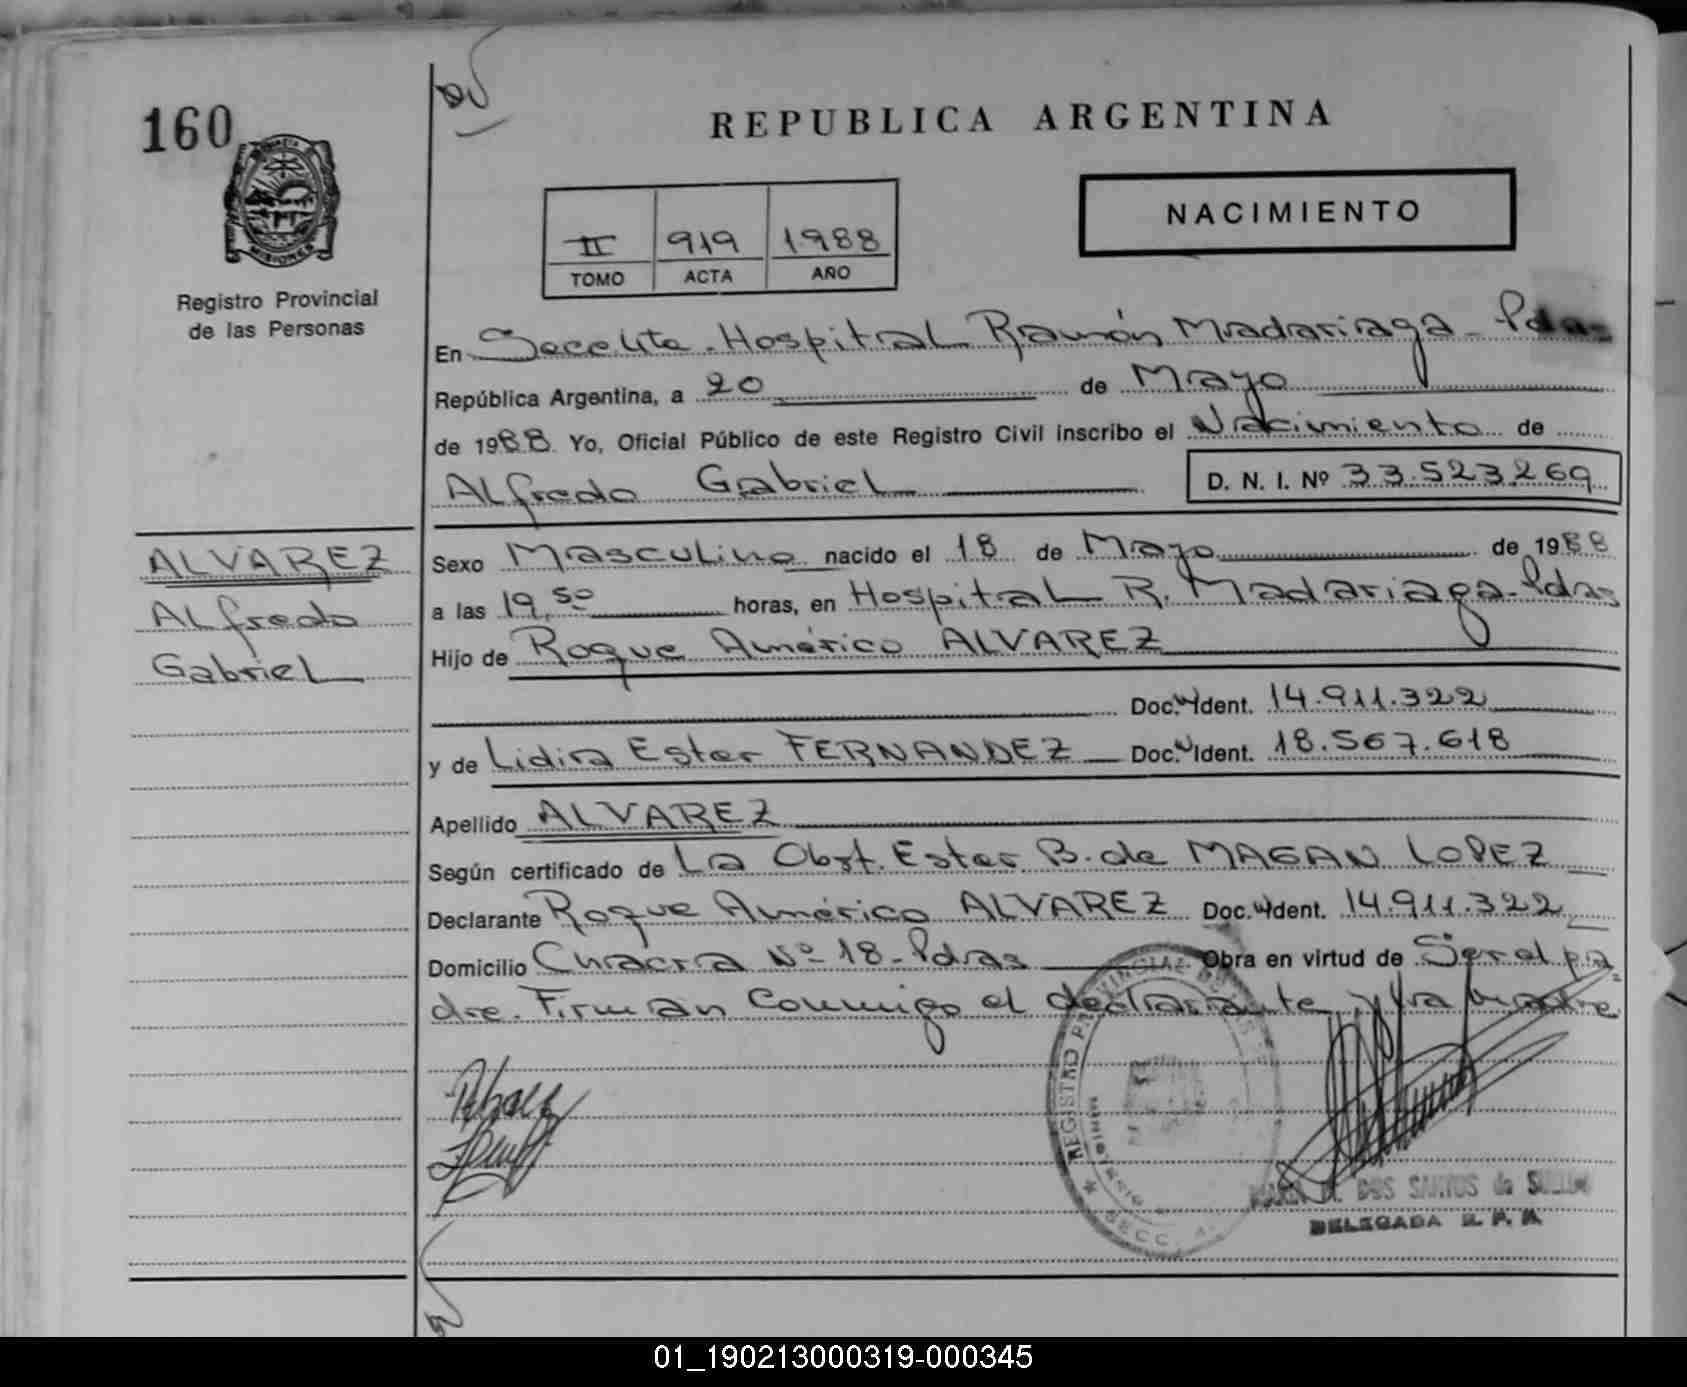 160
REPUBLICA ARGENTINA
NACIMIENTO
II 919 1988
TOMO ACTA AÑO
MISIONES
Registro Provincial
de las Personas
En Seccelite. Hospital Ramón Madariaga - Pdas
República Argentina, a 20 de Mayo
de 1988. Yo, Oficial Público de este Registro Civil inscribo el Nacimiento de
Alfredo Gabriel D. N. I. Nº 33.523.269
ALVAREZ
Alfredo
Gabriel
Sexo Masculino nacido el 18 de Mayo de 1988
a las 19,50 horas, en Hospital R. Madariaga - Pdas
Hijo de Roque Américo ALVAREZ
Doc. Ident. 14.911.322
y de Lidia Ester FERNANDEZ Doc. Ident. 18.567.618
Apellido ALVAREZ
Según certificado de La Obst. Ester B. de MAGAN LOPEZ
Declarante Roque Américo ALVAREZ Doc. Ident. 14.911.322
Domicilio Chacra Nº 18 - Pdas Obra en virtud de Ser el pa
dre. Firman conmigo el declarante y la madre
REGISTRO PROVINCIAL DE
MINISTERIO
SECC. 4
DOS SANTOS de
DELEGADA R. P. P.
01_190213000319-000345